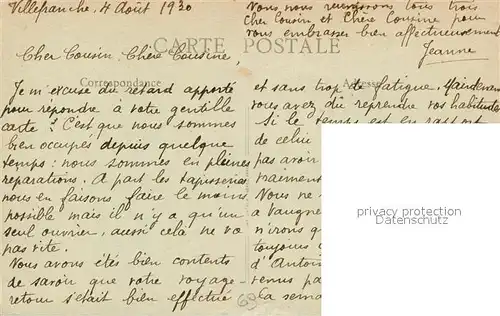 Villefranche, 4 Août 1930
Cher Cousin, Chère Cousine,
CARTE POSTALE
Correspondance
Je m'excuse du retard apporté
pour répondre à votre gentille
carte ! C'est que nous sommes
bien occupés depuis quelque
temps : nous sommes en pleines
réparations. A part les tapisseries
nous en faisons faire le moins
possible mais il n'y a qu'un
seul ouvrier, aussi cela ne va
pas vite.
Nous avons étés bien contents
de savoir que votre voyage-
retour s'était bien effectué
Adresse
et sans trop de fatigue. Maintenant
vous avez dû reprendre vos habitudes
Si le temps est en rapport
de celui
pas avoir
vraiment
Nous ne
à Vaugne
n'irons qu
toujours
d'Antoin
venus pa
la sema
Vous, nous réunissons tous trois
Cher Cousin et Chère Cousine pour
vous embrasser bien affectueusement
Jeanne
privacy protection
www.oldthing.de
69